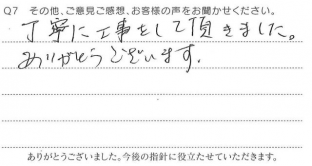 Q7 その他、ご意見ご感想、お客様の声をお聞かせください。
丁寧に工事をして頂きました。
ありがとうございます.
ありがとうございました。今後の指針に役立たせていただきます。